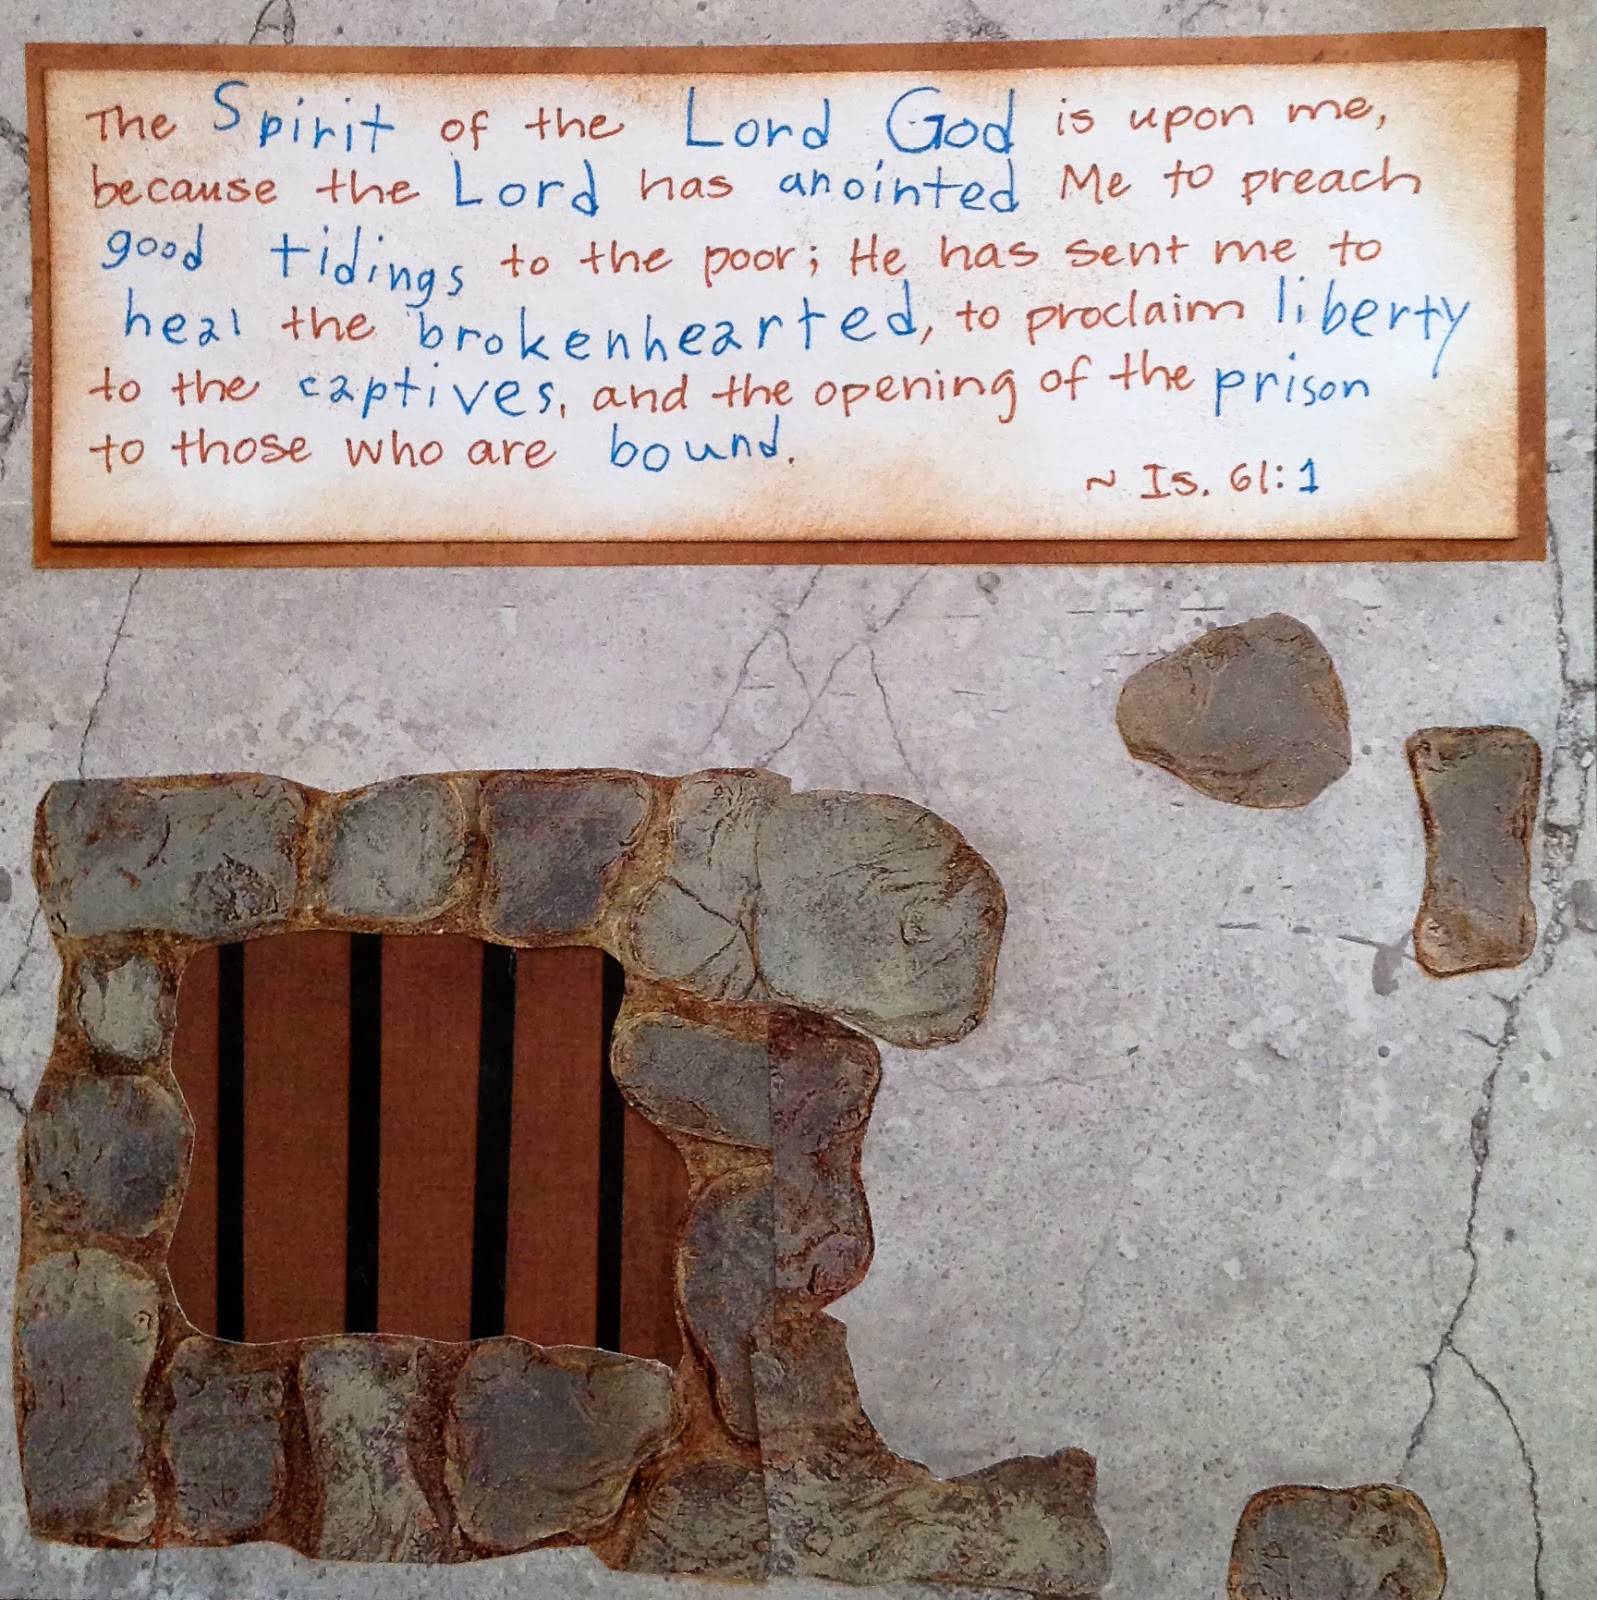 The Spirit of the Lord God is upon me,
because the Lord has anointed Me to preach
good tidings to the poor; He has sent me to
heal the brokenhearted, to proclaim liberty
to the captives, and the opening of the prison
to those who are bound.
~ Is. 61:1